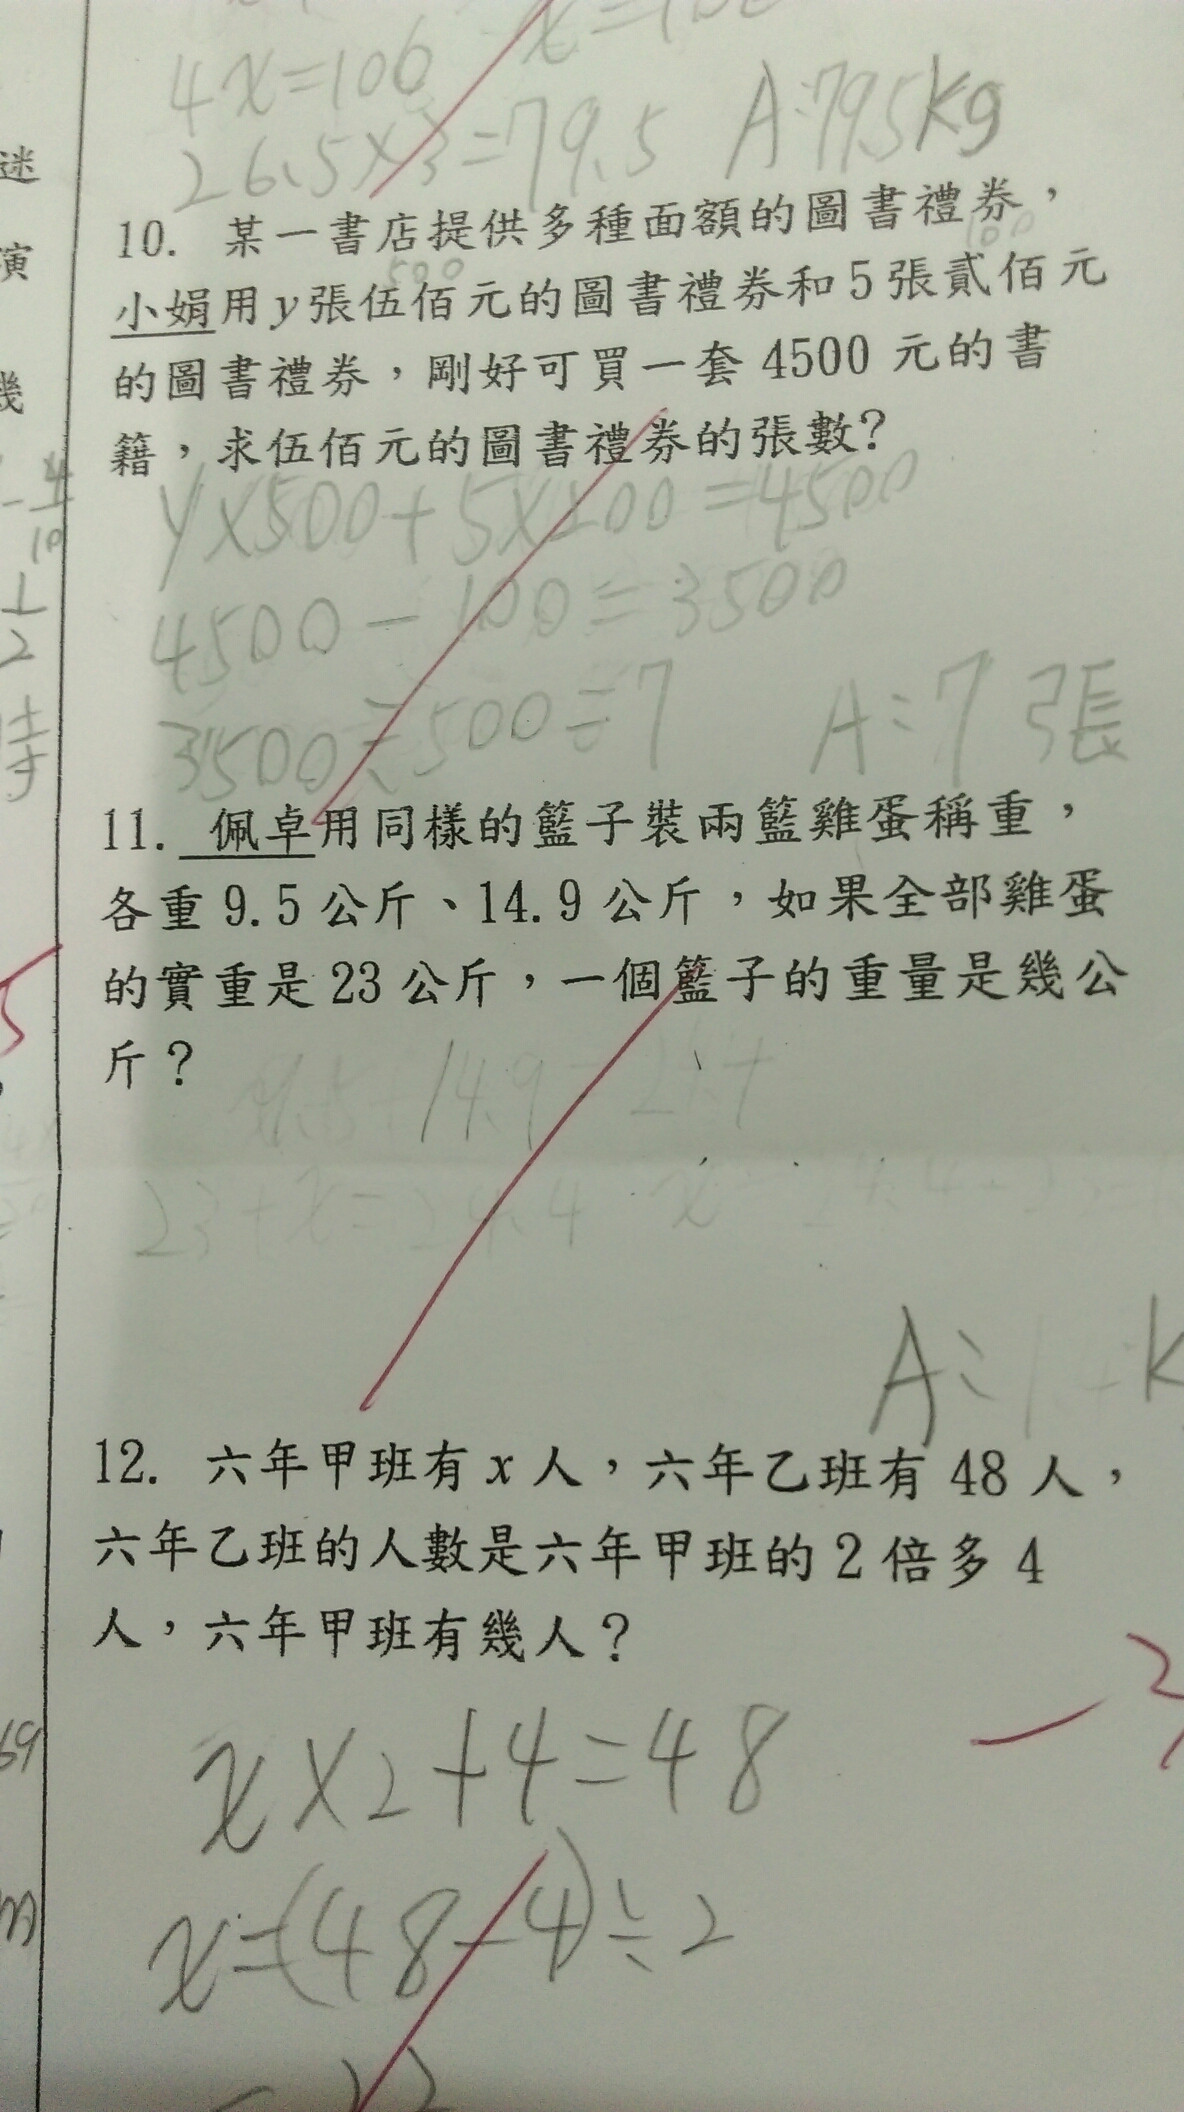 4x=106
26.5×3=79.5 A:79.5kg
10. 某一書店提供多種面額的圖書禮券，
500
小娟用y張伍佰元的圖書禮券和5張貳佰元
的圖書禮券，剛好可買一套 4500 元的書
籍，求伍佰元的圖書禮券的張數?
y×500+5×200=4500
4500-100=3500
3500÷500=7 A:7 張
11. 佩卓用同樣的籃子裝兩籃雞蛋稱重，
各重 9.5 公斤、14.9 公斤，如果全部雞蛋
的實重是 23 公斤，一個籃子的重量是幾公
斤？
14.9
23+x=24.4
A:
12. 六年甲班有 x 人，六年乙班有 48 人，
六年乙班的人數是六年甲班的 2 倍多 4
人，六年甲班有幾人？
x×2+4=48
x=(48-4)÷2
=22